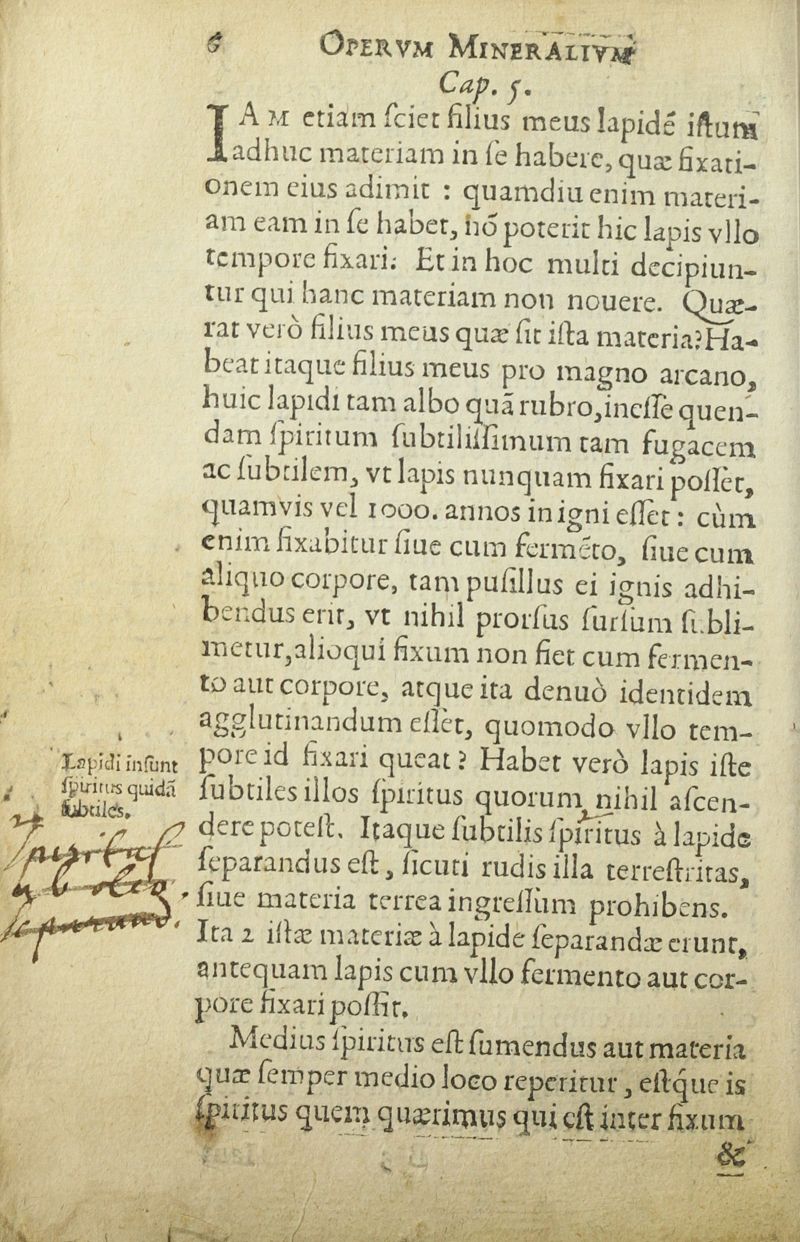 6 OPERVM MINERALIVM
Cap. 5.
IAM etiam ſciet filius meus lapidẽ iſtum
adhuc materiam in ſe habere, quæ fixati-
onem eius adimit : quamdiu enim materi-
am eam in ſe habet, nõ poterit hic lapis vllo
tempore fixari: Et in hoc multi decipiun-
tur qui hanc materiam non nouere. Quæ-
rat verò filius meus quæ ſit iſta materia? Ha-
beat itaque filius meus pro magno arcano,
huic lapidi tam albo quã rubro, ineſſe quen-
dam ſpiritum ſubtiliſſimum tam fugacem
ac ſubtilem, vt lapis nunquam fixari poſſet,
quamvis vel 1000. annos in igni eſſet : cùm
enim fixabitur ſiue cum fermẽto, ſiue cum
aliquo corpore, tam puſillus ei ignis adhi-
bendus erit, vt nihil prorſus ſurſum ſubli-
metur, alioqui fixum non fiet cum fermen-
to aut corpore, atque ita denuò identidem
agglutinandum eſſet, quomodo vllo tem-
pore id fixari queat? Habet verò lapis iſte
ſubtiles illos ſpiritus quorum nihil aſcen-
dere poteſt. Itaque ſubtilis ſpiritus à lapide
ſeparandus eſt, ſicuti rudis illa terreſtritas,
ſiue materia terrea ingreſſum prohibens.
Ita 2 iſtæ materiæ à lapide ſeparandæ erunt,
antequam lapis cum vllo fermento aut cor-
pore fixari poſſit.
Medius ſpiritus eſt ſumendus aut materia
quæ ſemper medio loco reperitur, eſtque is
ſpiritus quem quærimus qui eſt inter fixum
&
Lapidi inſunt
ſpiritus quidã
ſubtiles.